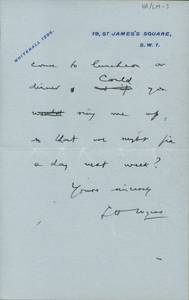 WHITEHALL 1200.
19, ST JAMES'S SQUARE,
S.W.1.
come to luncheon or
dinner. Could you
ring me up,
so that we might fix
a day next week?
Yours sincerely